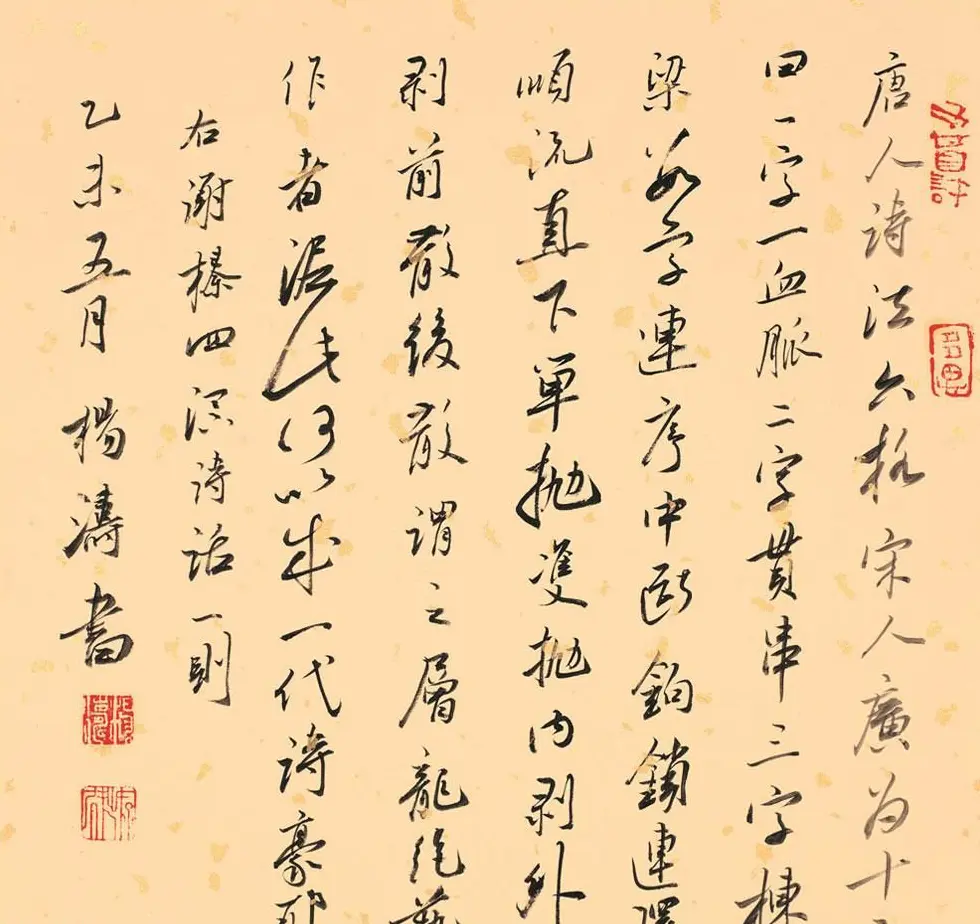 唐人詩法六格宋人廣為十
曰一字血脈二字貫串三字棟
梁數字連序中斷鉤鎖連環
順流直下單拋雙拋內剥外
剥前散後散謂之層龍絶藝
作者泥此何以成一代詩豪耶
右謝榛四溟詩話一則
乙未五月楊濤書